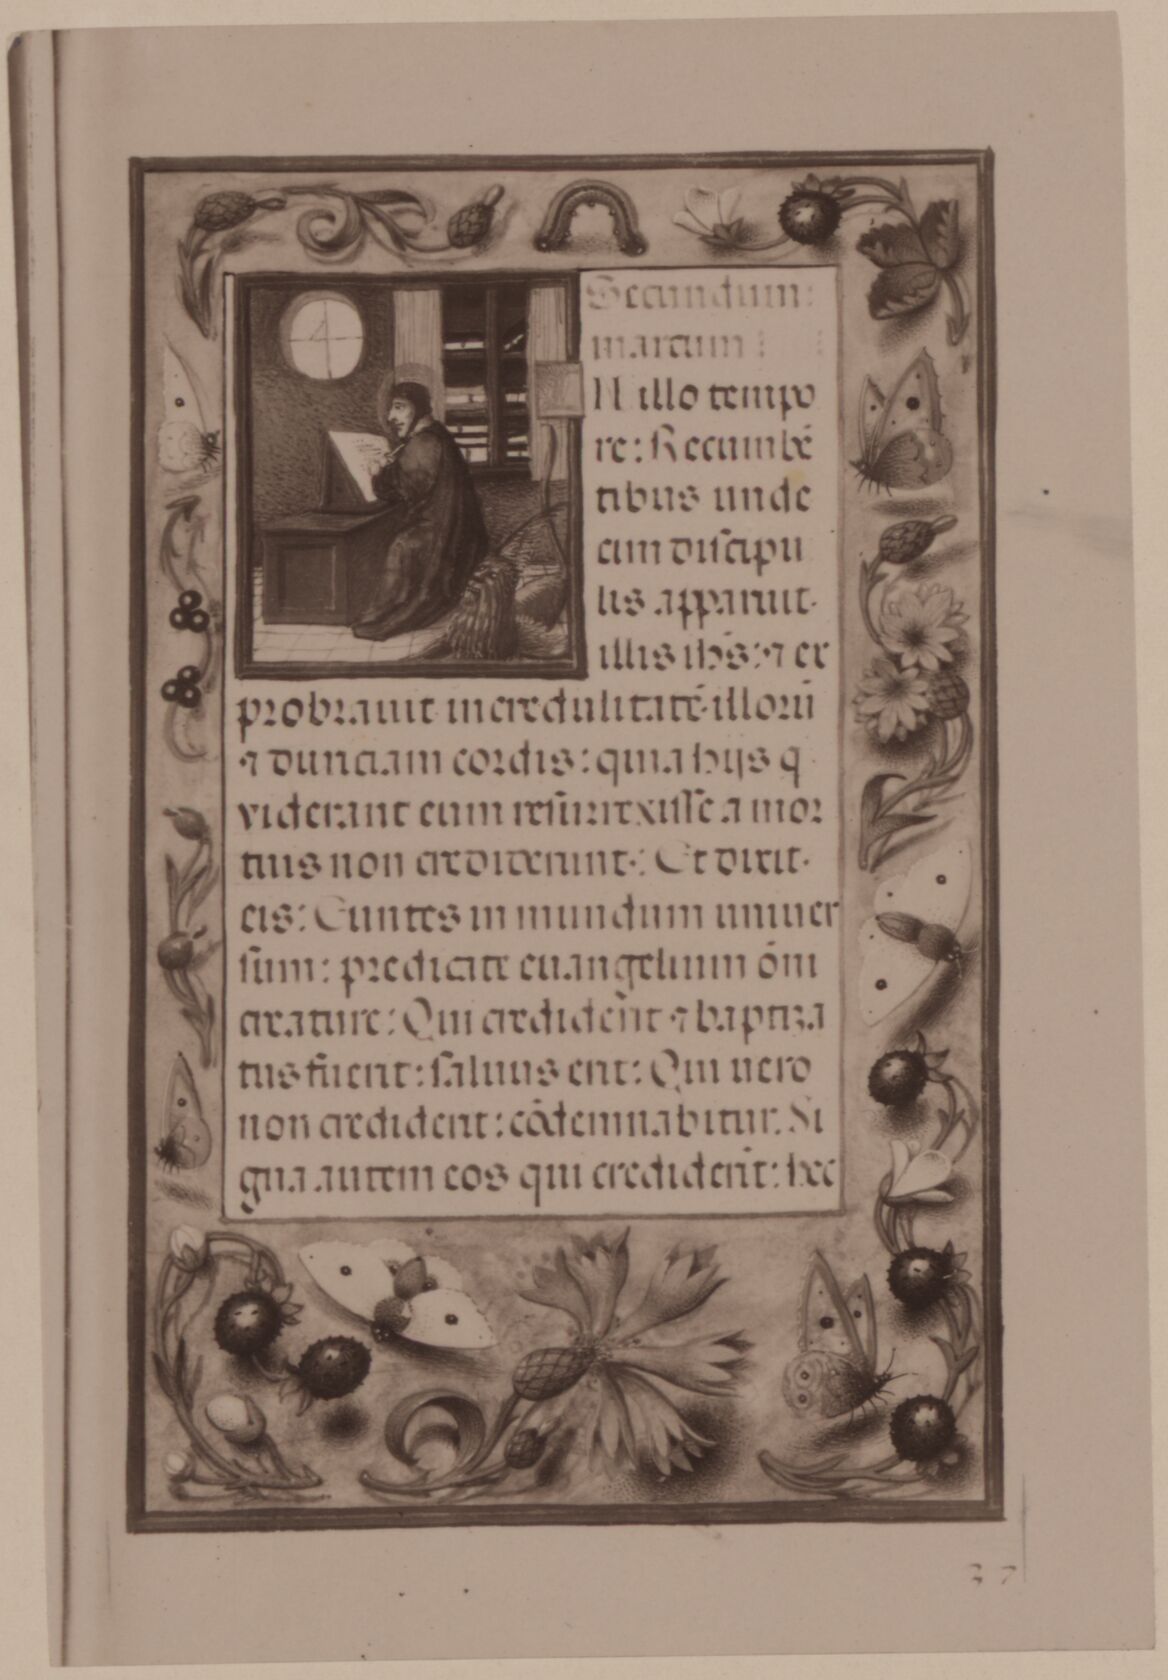 Secundum
marcum
N illo tempo
re: Recumbẽ
tibus unde
cim discipu
lis apparuit
illis ihs: ⁊ ex
probrauit incredulitatẽ illorũ
⁊ duriciam cordis: quia hijs q
viderant eum resurrexisse a mor
tuis non crediderunt: Et dixit
eis: Euntes in mundum uniuer
sum: predicate euangelium õni
creature: Qui crediderit ⁊ baptiza
tus fuerit: saluus erit: Qui uero
non crediderit: cõdemnabitur. Si
gna autem eos qui crediderĩt: hec
37